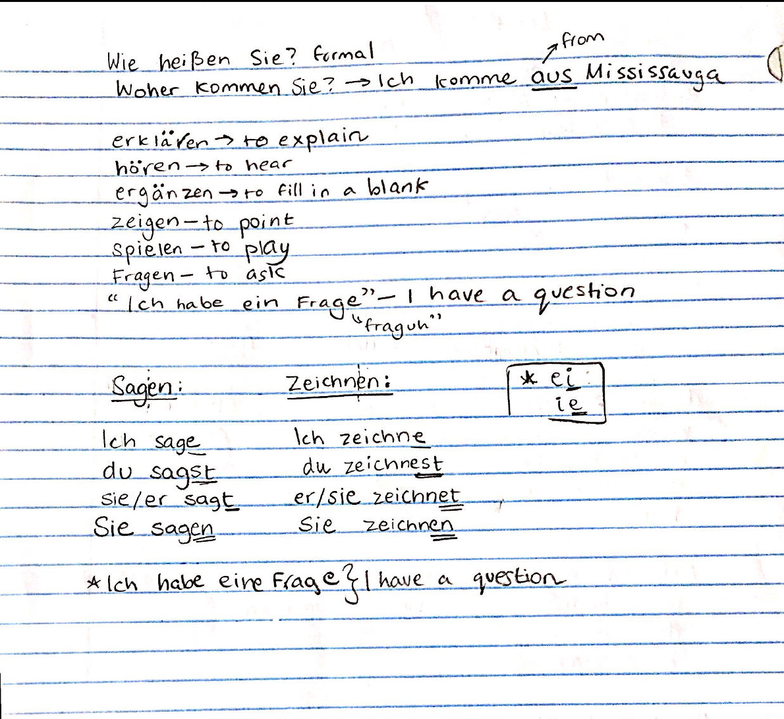 from
Wie heißen Sie? formal
Woher kommen Sie? → Ich komme aus Mississauga
erklären → to explain
hören → to hear
ergänzen → to fill in a blank
zeigen – to point
spielen – to play
Fragen – to ask
"Ich habe ein Frage" – I have a question
"fraguh"
Sagen: Zeichnen: * ei
ie
Ich sage Ich zeichne
du sagst du zeichnest
sie/er sagt er/sie zeichnet
Sie sagen Sie zeichnen
*Ich habe eine Frage } I have a question